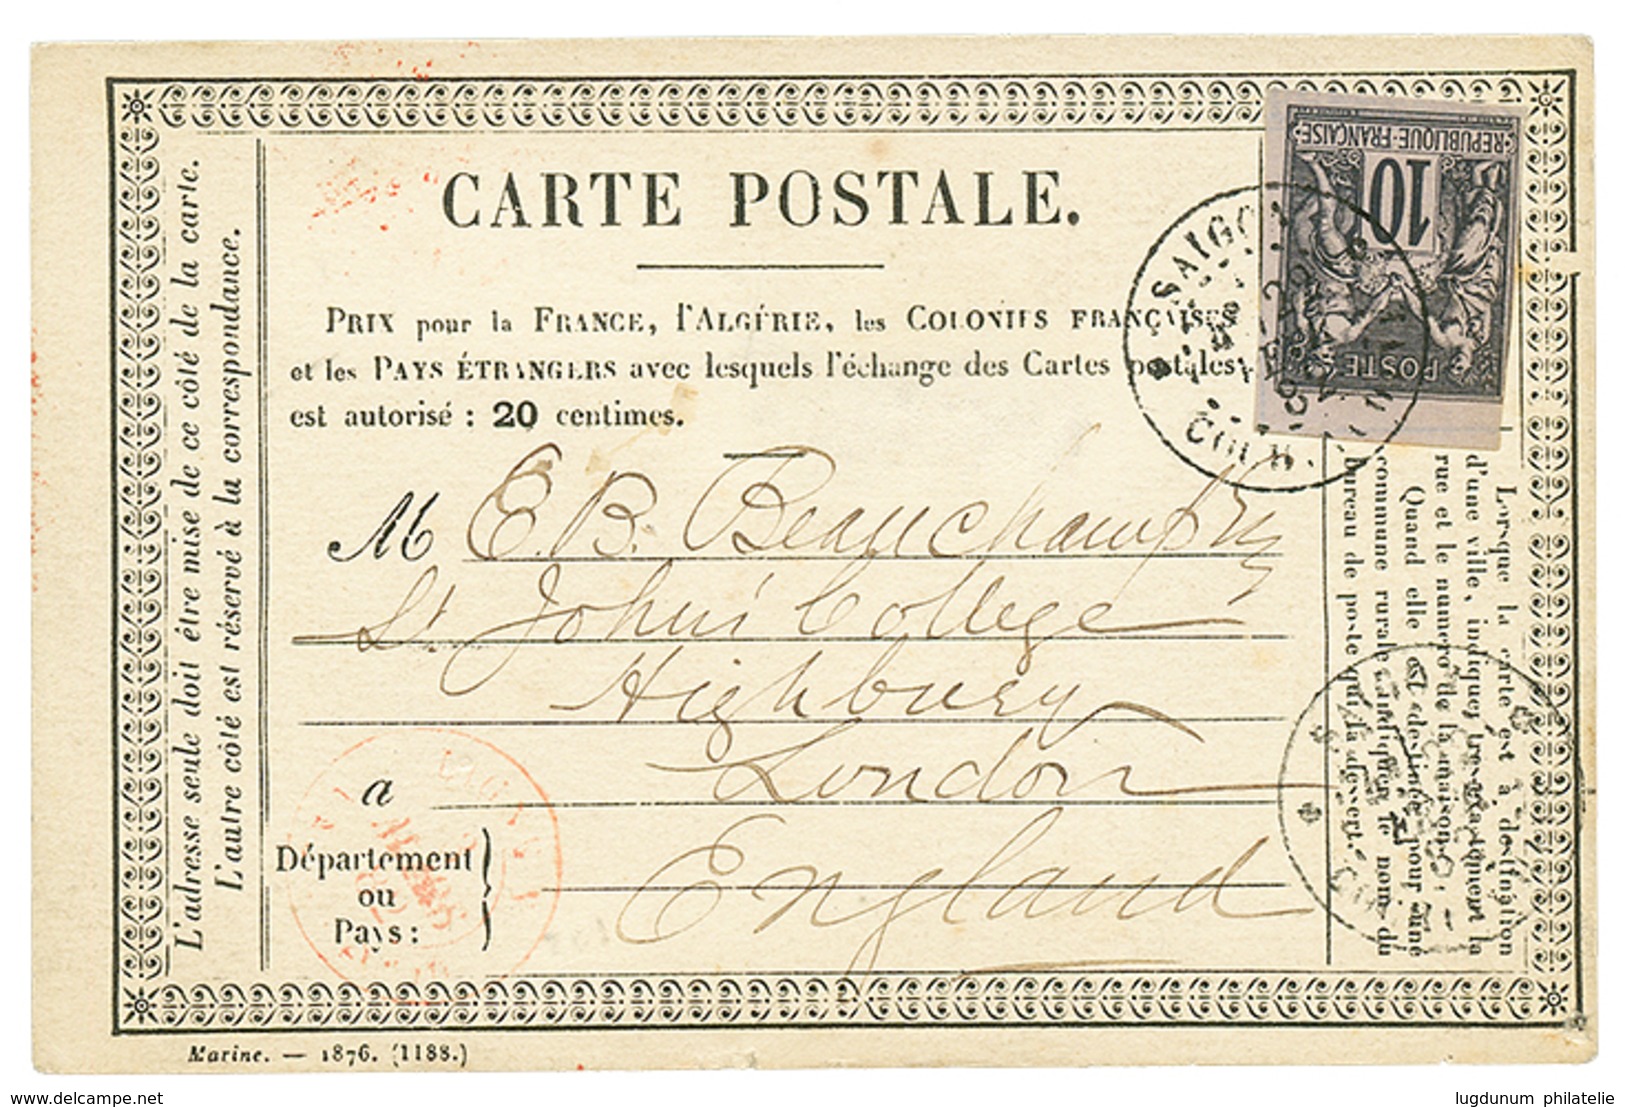 CARTE POSTALE.
PRIX pour la FRANCE, l'ALGÉRIE, les COLONIES FRANÇAISES
et les PAYS ÉTRANGERS avec lesquels l'échange des Cartes postales
est autorisé : 20 centimes.
M E. B. Beauchamp
St John's College
Highbury
a London
Département
ou
Pays :
England
L'adresse seule doit être mise de ce côté de la carte.
L'autre côté est réservé à la correspondance.
REPUBLIQUE-FRANÇAISE
10
POSTE
SAIGON
Lorsque la carte est à destination
d'une ville, indiquer très-exactement la
rue et le numéro de la maison.
Quand elle est destinée pour une
commune rurale indiquer le nom du
bureau de poste qui la dessert.
Marine. — 1876. (1188.)
delcampe.com
lugdunum philatelie